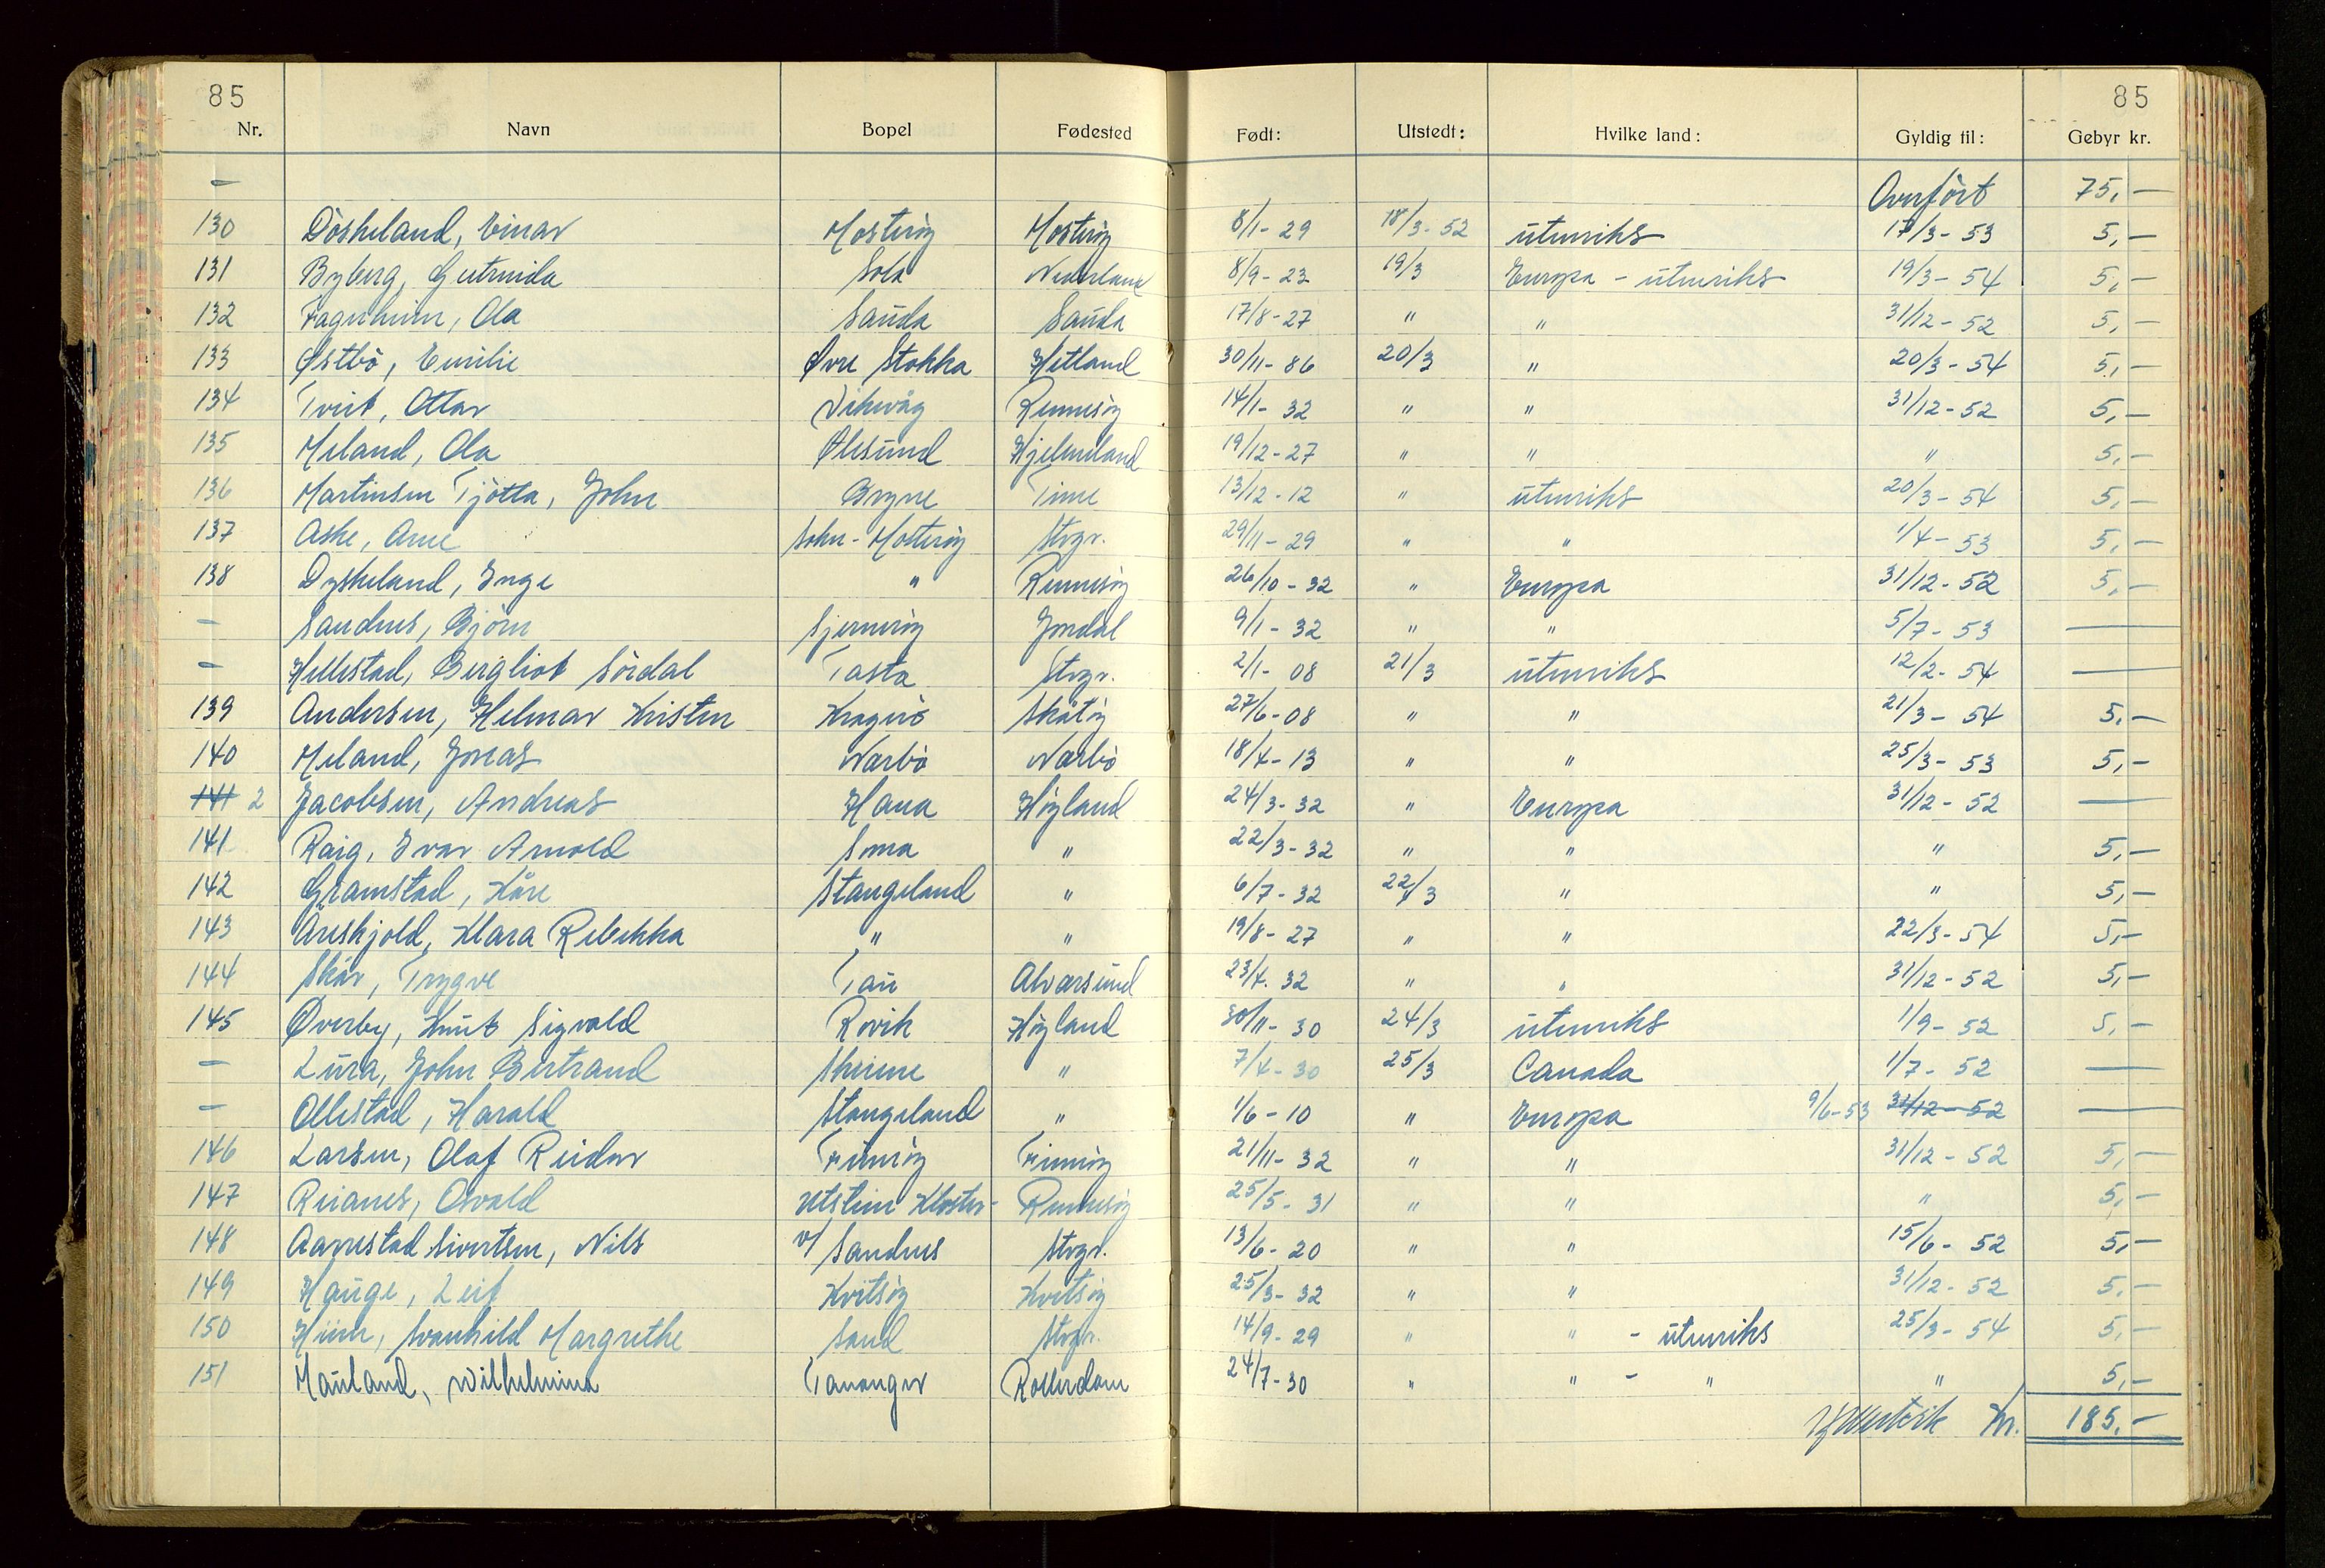 85 85
Nr. Navn Bopel Fødested Født: Utstedt: Hvilke land: Gyldig til: Gebyr kr.
— Overført 75,-
130 Döskeland, Einar Mosterøy Mosterøy 8/1-29 18/3-52 utenriks 17/3-53 5,-
131 Byberg, Gertruida Sola Nederland 8/9-23 19/3 Europa - utenriks 19/3-54 5,-
132 Fagerheim, Ola Sauda Sauda 17/8-27 " " 31/12-52 5,-
133 Østbö, Emilie Øvre Stokka Hetland 30/11-86 20/3 " 20/3-54 5,-
134 Tveit, Ottar Vikevåg Rennesøy 14/1-32 " " 31/12-52 5,-
135 Meland, Ola Ålesund Hjelmeland 19/12-27 " " " 5,-
136 Martinsen Tjötta, John Bryne Time 13/12-12 " utenriks 20/3-54 5,-
137 Aske, Arne Sokn-Mosterøy Stvgr. 29/11-29 " " 1/4-53 5,-
138 Dyskeland, Inge " Rennesøy 26/10-32 " Europa 31/12-52 5,-
— Sandnes, Björn Sjernerøy Jondal 9/1-32 " " 5/7-53 —
— Hellestad, Bergliot Sördal Tasta Stvgr. 2/1-08 21/3 utenriks 12/2-54 —
139 Andersen, Helmar Kristen Kragerö Skåtøy 27/6-08 " " 21/3-54 5,-
140 Meland, Jonas Nærbö Nærbö 18/4-13 " " 25/3-53 5,-
141 2 Jacobsen, Andreas Hana Høyland 24/3-32 " Europa 31/12-52 —
141 Raig, Ivar Arnold Soma " 22/3-32 " " " 5,-
142 Gramstad, Kåre Stangeland " 6/7-32 22/3 " " 5,-
143 Areskjold, Klara Rebekka " " 19/8-27 " " 22/3-54 5,-
144 Skår, Trygve Tau Alversund 23/4.32 " " 31/12-52 5,-
145 Øverby, Knut Sigvald Rovik Høyland 30/11-30 24/3 utenriks 1/9-52 5,-
— Lura, John Bertrand Skeiene " 7/4-30 25/3 Canada 1/7-52 —
— Ollestad, Harald Stangeland " 1/6-10 " Europa 9/6-53 31/12-52 —
146 Larsen, Olaf Reidar Finnøy Finnøy 21/11-32 " " 31/12-52 5,-
147 Reianes, Osvald Utstein Kloster- Rennesøy 25/5-31 " " " 5,-
148 Aarrestad Sivertsen, Nils v/ Sandnes Stvgr. 13/6-20 " " 15/6-52 5,-
149 Hauge, Leif Kvitsøy Kvitsøy 25/3-32 " " 31/12-52 5,-
150 Hiim, Svanhild Margrethe Sand Stvgr. 14/9-29 " " - utenriks 25/3-54 5,-
151 Mauland, Wilhelmina Tananger Rotterdam 24/7-30 " " - " " 5,-
Kr. 185,-